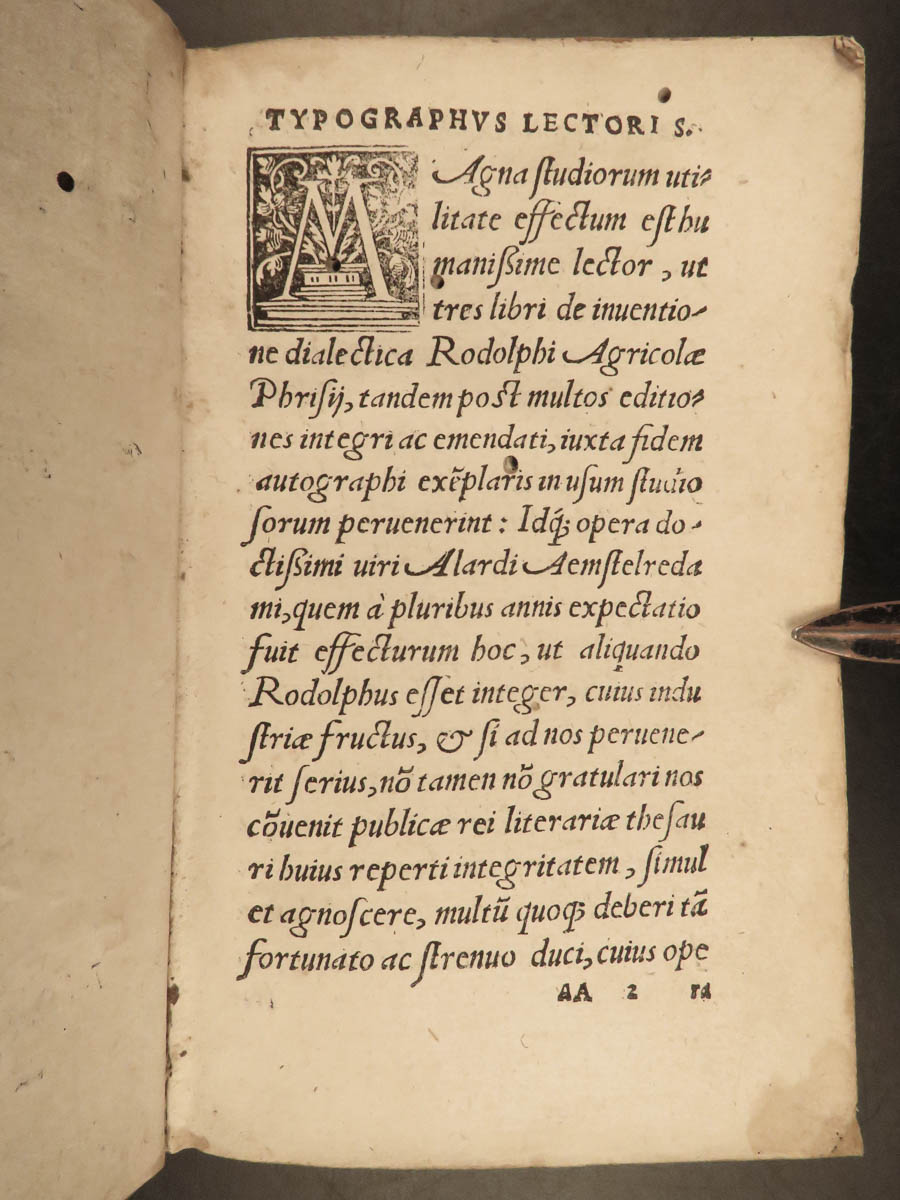 TYPOGRAPHVS LECTORI S.
MAgna ſtudiorum uti-
litate effectum eſt hu
maniſsime lector, ut
tres libri de inuentio-
ne dialectica Rodolphi Agricolæ
Phriſij, tandem poſt multos editio-
nes integri ac emendati, iuxta fidem
autographi exẽplaris in uſum ſtudio
ſorum peruenerint: Idq́; opera do-
ctiſsimi uiri Alardi Aemſtelreda
mi, quem à pluribus annis expectatio
fuit effecturum hoc, ut aliquando
Rodolphus eſſet integer, cuius indu
ſtriæ fructus, & ſi ad nos peruene-
rit ſerius, nõ tamen nõ gratulari nos
cõuenit publicæ rei literariæ theſau
ri huius reperti integritatem, ſimul
et agnoſcere, multũ quoq; deberi tã
fortunato ac ſtrenuo duci, cuius ope
AA 2 ra